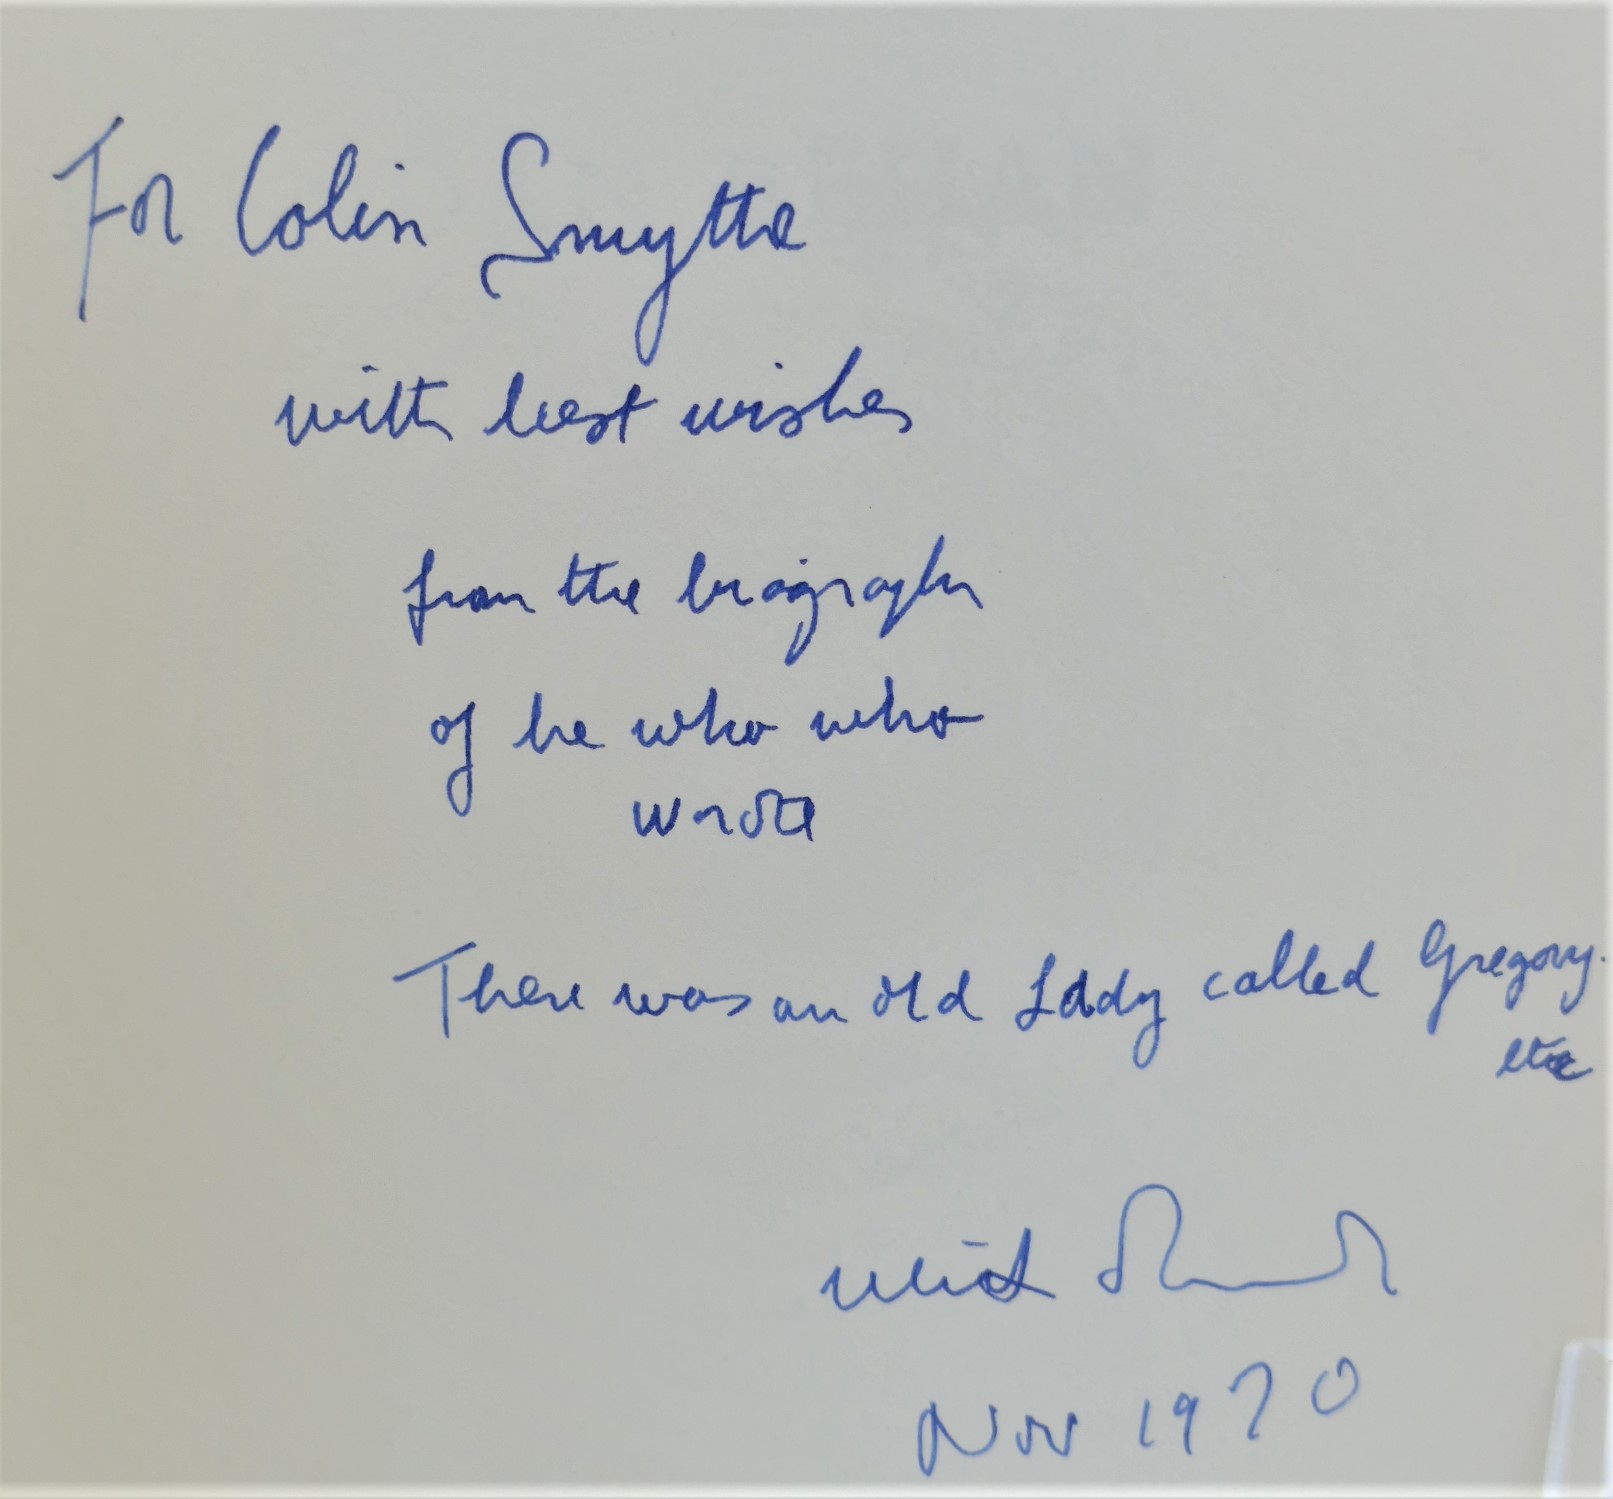 For Colin Smythe
with best wishes
from the biographer
of he who who
wrote
There was an old Lady called Gregory.
etc
Ulick
Nov 1970